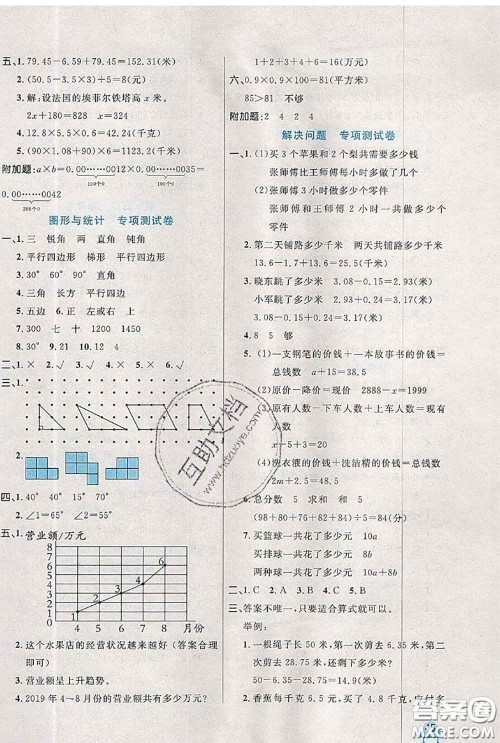 五、1. 79.45－6.59＋79.45＝152.31(米)
2. (50.5－3.5＋5)÷5＝8(元)
3. 解：设法国的埃菲尔铁塔高x米。
2x＋180＝828　x＝324
4. 12.8×5.5＋5.6＝76(千克)
5. 0.9×0.9×100＝81(米)
附加题：a×b＝0.00……0012×0.00……0011＝
0.00……00132
图形与统计　专项测试卷
一、1. 三　锐角　两　直角　钝角
2. 平行四边形　梯形　平行四边
3. 30°　90°　90°
4. 三角　长方　平行四边
5. 五边　6. 正　左或右　上
7. 300　七　十　1200　1450
8. 30°　9. 21　10. 12　4
二、1. ×　2. √　3. ×　4. ×　5. ×　6. √
三、1.
2.
四、1. 40°　40°　15°　70°
2. ∠1＝55°　∠2＝65°
五、1. 营业额/万元
7
6
5
4
3
2
1
0
4　5　6　7　8　月份
2. 这个水果店的经营状况越来越好(答案合理
即可)
3. 营业额呈上升趋势。
4. 2019年4～8月份的营业额共有多少万元?
1＋2＋3＋4＋6＝16(万元)
六、0.9×0.9×100＝81(平方米)
85＞81　不够
附加题：2　4　2　4
解决问题　专项测试卷
一、1. (1)买3个苹果和2个梨共需要多少钱
张师傅比王师傅每小时多做多少个
(2)张师傅2小时做多少个零件
张师傅和王师傅2小时一共做多少个
零件
2. 第二天铺路多少千米　两天共铺路多少千米
13.6－1.7　13.6－1.7＋13.6
3. 晓东跳了多少米
小军跳了多少米
4. 8　5　够
5. (1)一支钢笔的价钱＋一本故事书的价钱＝
总价钱
(2)原价－现价＝降价　2888－x＝1999
(3)原有人数－下车人数＋上车人数＝现有
人数
(4)洗衣液的价钱＋洗洁精的价钱＝总钱数
6. 总分数　5　求和　和　5
(98＋80＋76＋82＋84)÷5＝84(分)
7. 买篮球一共花了多少元　10a
买排球一共花了多少元　8b
两种球一共花了多少元　10a＋8b
二、1. C　2. A　3. B　4. C　5. A
三、答案不唯一，只要适合算式就可以。
举例：
1. 一根绳子长50米，第一次剪去6.25米，第二
次剪去28.75米，还剩下多少米?
2. 香蕉每千克6.5元，买了4.8千克，应付多
互助文档
www.hdzuoye.com